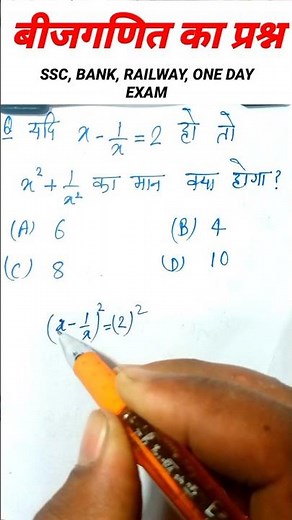 बीजगणित का प्रश्न
SSC, BANK, RAILWAY, ONE DAY
EXAM
Q यदि x - 1/x = 2 हो तो
x² + 1/x² का मान क्या होगा?
(A) 6 (B) 4
(C) 8 (D) 10
(x - 1/x)² = (2)²